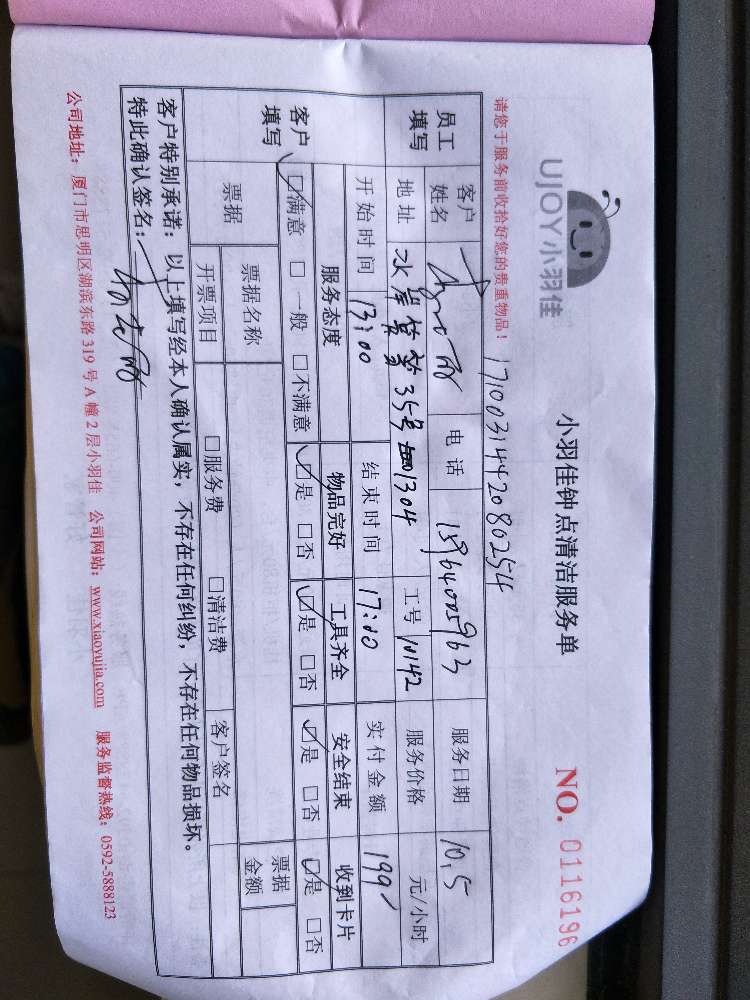 UJOY小羽佳
小羽佳钟点清洁服务单
NO. 0116196
请您于服务前收拾好您的贵重物品!
171003144208025​4
员工填写 客户姓名 电话 15964005963 服务日期 10.5
地址 水岸 35号 1304 工号 10142 服务价格 元/小时
开始时间 13:00 结束时间 17:00 实付金额 199
客户填写 服务态度 物品完好 工具齐全 安全结束 收到卡片
☑满意 □一般 □不满意 ☑是 □否 ☑是 □否 ☑是 □否 ☑是 □否
票据 票据名称 票据金额
开票项目 □服务费 □清洁费 客户签名
客户特别承诺:以上填写经本人确认属实,不存在任何纠纷,不存在任何物品损坏。
特此确认签名:
公司地址:厦门市思明区湖滨东路319号A幢2层小羽佳 公司网站:www.xiaoyujia.com 服务监督热线:0592-5888123